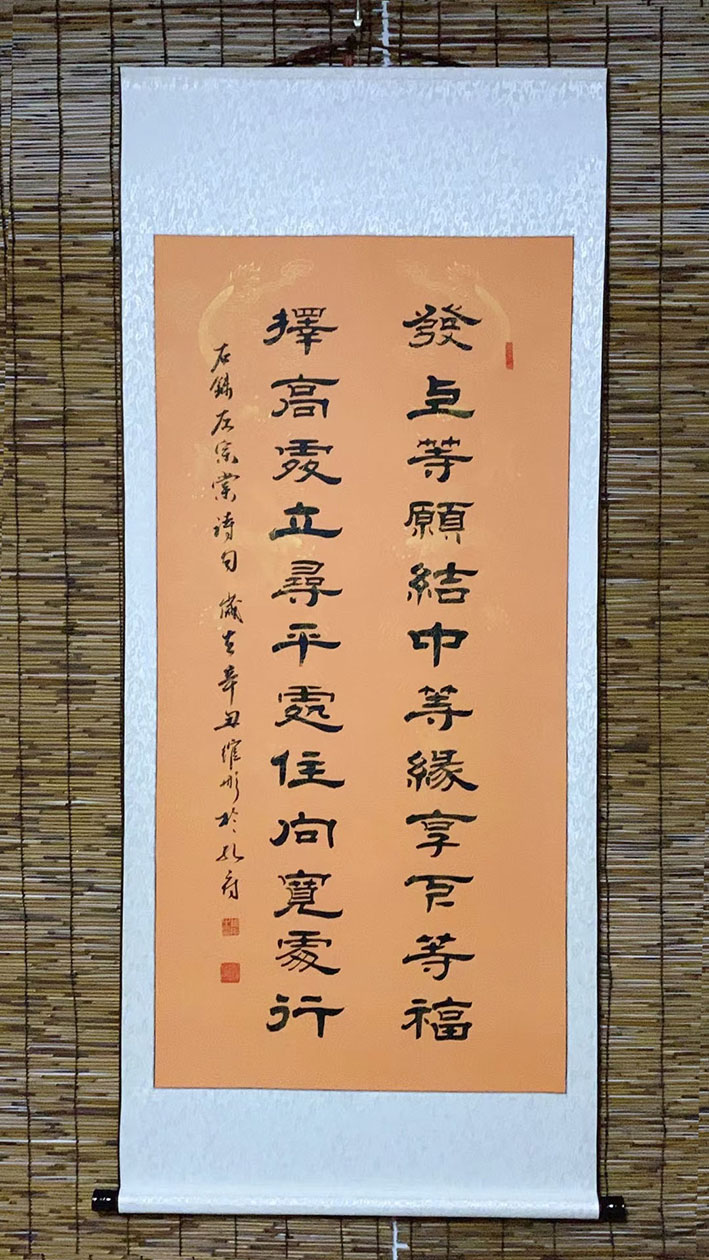 發上等願結中等緣享下等福
擇高處立尋平處住向寬處行
右錄左宗棠诗句 歲在辛丑維彬於孔府